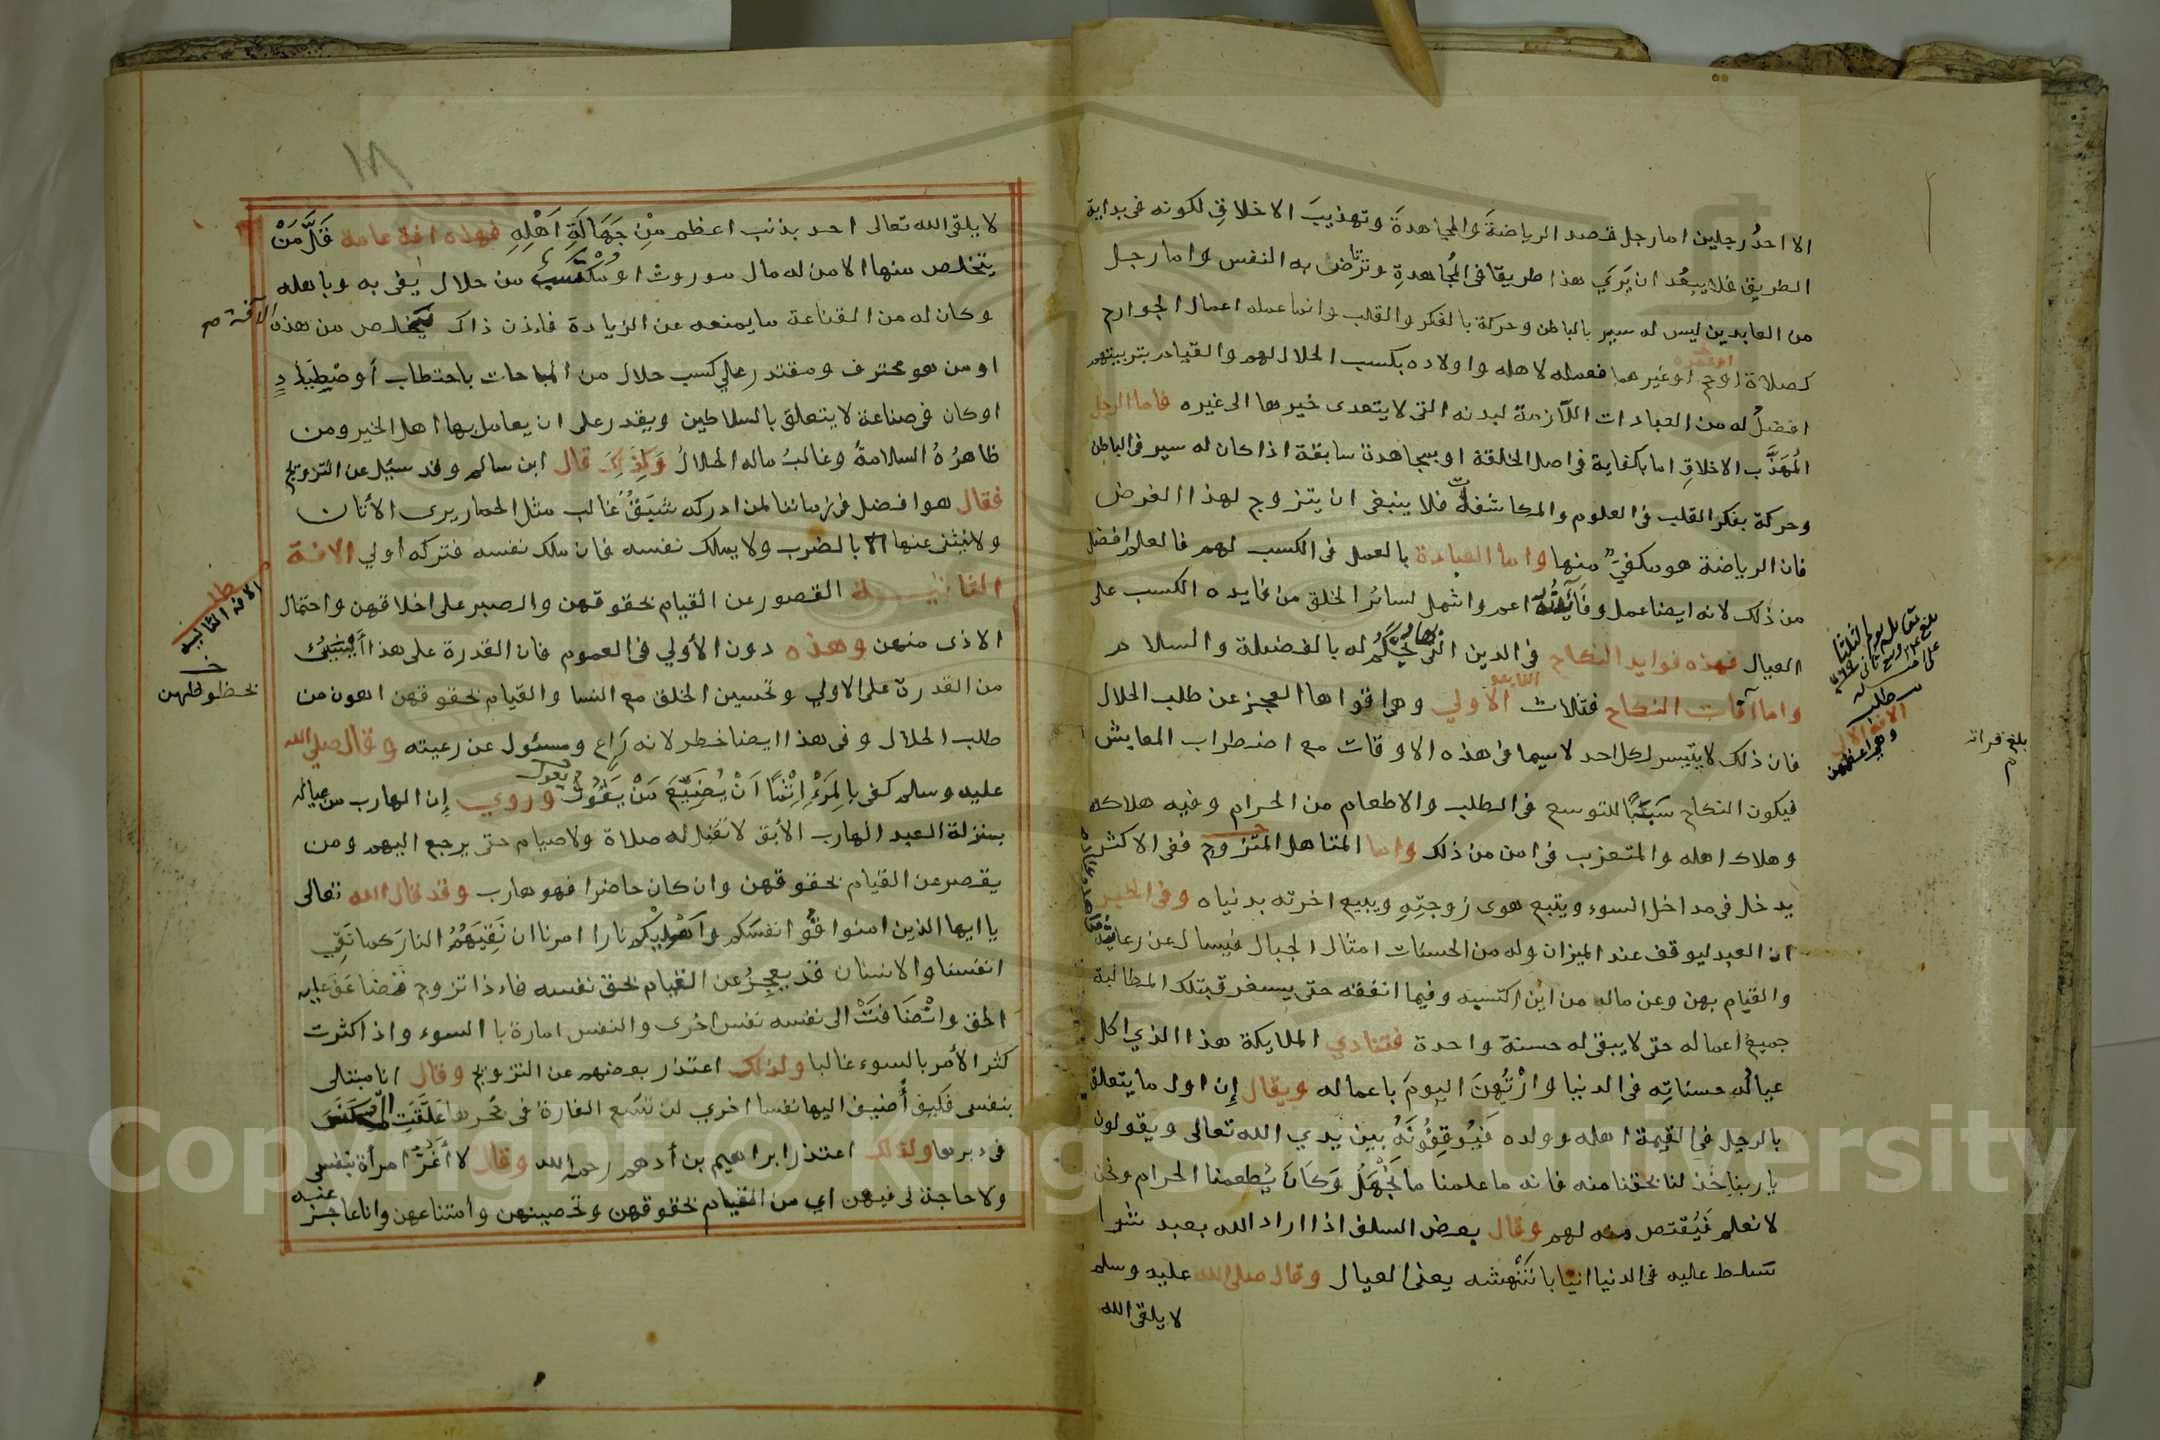 الا احدُ رجلين اما رجل قصد الرياضةَ والمجاهدةَ وتهذيبَ الاخلاقِ لكونه فى بداية
الطريق فلا يبعُد ان يَرَيَ هذا طريقا فى المُجاهدةِ وترتاض به النفس واما رجل
من العابدين ليس له سير بالباطن وحركة بالفكر والقلب وانما عمله اعمال الجوارح
كصلاة او حج او غيرهما فعمله لاهله واولاده بكسب الحلال لهم والقيام بتربيتهم
افضلُ له من العبادات اللازمة لبدنه التى لا يتعدى خيرها الى غيره فاما الرجل
المُهَذَّب الاخلاقِ اما بكفاية فى اصل الخلقة او بمجاهدة سابقة اذا كان له سير فى الباطن
وحركة بفكر القلب فى العلوم والمكاشفات فلا ينبغى ان يتزوج لهذا الغرض
فان الرياضة هو مكفيٌّ منها واما العبادة بالعمل فى الكسب لهم فالعلم افضل
من ذلك لانه ايضا عمل وفائدته اعم واشمل لسائر الخلق من فايده الكسب على
العيال فهذه فوايد النكاح فى الدين التى بها يُحكَمُ له بالفضيلة والسلام
واما آفات النكاح فثلاث الاولي وهى اقواها العجز عن طلب الحلال
فان ذلك لا يتيسر لكل احد لا سيما فى هذه الاوقات مع اضطراب المعايش
فيكون النكاح سَبَبًا للتوسع فى الطلب والاطعام من الحرام وفيه هلاكه
وهلاك اهله والمتعزب فى امن من ذلك واما المتاهل المتزوج ففى الاكثر
يدخل فى مداخل السوء ويتبع هوى زوجتِهِ ويبيع اخرته بدنياه وفى الخبر
ان العبد ليوقف عند الميزان وله من الحسنات امثال الجبال فيسال عن رعاية
والقيام بهن وعن ماله من اين اكتسبه وفيما انفقه حتى يستغرق بتلك المطالبة
جميع اعماله حتى لا يبقى له حسنة واحدة فتنادي الملايكة هذا الذي اكل
عيالُه حسناتِه فى الدنيا وارْتُهِنَ اليومَ باعماله ويقال إن اول ما يتعلق
بالرجل فى القيمة اهله وولده فيُوقِفُونَهُ بين يدي الله تعالى ويقولون
يا ربنا خذ لنا بحقنا منه فانه ما علمنا ما نَجْهَلُ وَكَانَ يُطعمنا الحرام ونحن
لا نعلم فيُقتص منه لهم وقال بعض السلف اذا اراد الله بعبد شرا
سَلط عليه فى الدنيا انيابا تنهشه يعنى العيال وقال صلى الله عليه وسلم
لا يلقى الله
مطلب
الافة الاولى
وهى اعظمهن
بلغ قراة
لا يلقى الله تعالى احد بذنب اعظم مِنْ جَهَالَةِ اَهْلِهِ فهذه افة عامة قَلَّ مَنْ
يتخلص منها الا من له مال موروث او مُكْتَسَبٌ من حلال يفى به وباهله
وكان له من القناعة ما يمنعه عن الزيادة فاذن ذاك يتخلص من هذه الآفة
او من هو محترف ومقتدر علي كسب حلال من المباحات باحتطاب أو صْطِيَادٍ
او كان فى صناعة لا يتعلق بالسلاطين ويقدر على ان يعامل بها اهل الخير ومن
ظاهرُهُ السلامةُ وغالبُ ماله الحلالُ وَلِذلِكَ قال ابن سالم وقد سيُل عن التزويج
فقال هو افضل فى زماننا لمن ادركه شبَقٌ غالب مثل الحمار يرى الأتان
ولا ينثنى عنها الا بالضرب ولا يملك نفسه فان ملك نفسه فتركه أولي الافة
الثانية القصور عن القيام بحقوقهن والصبر على اخلاقهن واحتمال
الاذى منهن وهذه دون الأولي فى العموم فان القدرة على هذا أيسرُ
من القدرة على الاولي وتحسين الخلق مع النسا والقيام بحقوقهن اهون من
طلب الحلال وفى هذا ايضا خطر لانه رَاعٍ ومسئول عن رعيته وقال صلى الله
عليه وسلم كفى بالمَرْءِ اِثْمًا اَنْ يُضَيِّعَ مَنْ يَعُولُ وروي إن الهارب من عياله
بمنزلة العبد الهارب الأبق لا تقبل له صلاة ولا صيام حتى يرجع اليهم ومن
يقصر عن القيام بحقوقهن وان كان حاضرا فهو هارب وقد قال الله تعالى
يا ايها الذين امنوا قُوا انفسَكم واَهْلِيكم نارا امرنا ان نَقِيَهُمُ النارَ كما نَقِي
انفسنا والانسان قد يعجِزُ عن القيام بحق نفسه فاذا تزوج تضاعَفَ عليه
الحق وانْضَافَتْ الى نفسه نفس اخرى والنفس امارة با السوء واذا كثرت
كثر الأمر بالسوء غالبا ولذلك اعتذر بعضهم عن التزويج وقال انا مبتلى
بنفسى فكيف أُضيف اليها نفسا اخري لن تسَع الفارةُ فى جُحرِها عَلَّقَتِ المكنس
فى دبرها ولذلك اعتذر ابراهيم بن أدهم رحمه الله وقال لا أَغُرُّ امرأة بنفسى
ولا حاجة لى فيهن اي من القيام بحقوقهن وتحصينهن وامتناعهن وانا عاجز عنه
الافة
مطلب
الافة الثانية
بحظوظهن
Copyright © King Saud University